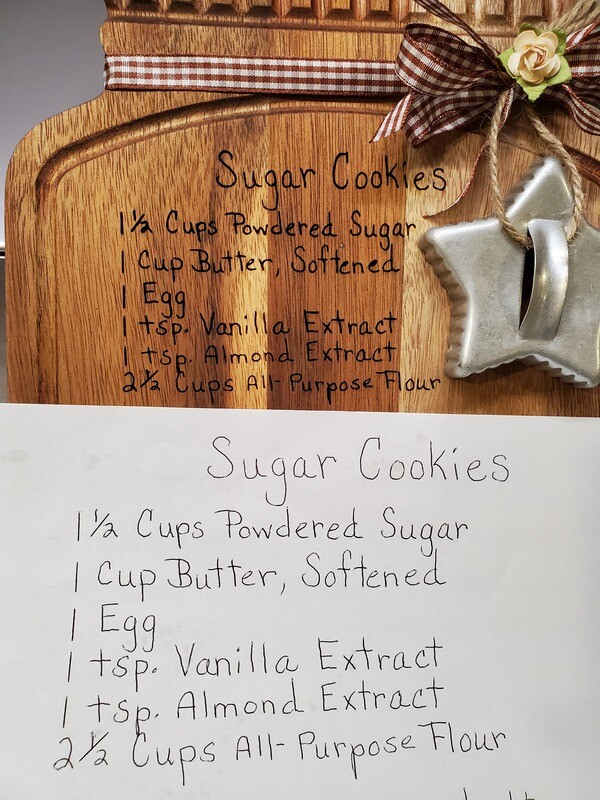 Sugar Cookies
1½ Cups Powdered Sugar
1 Cup Butter, Softened
1 Egg
1 tsp. Vanilla Extract
1 tsp. Almond Extract
2½ Cups All-Purpose Flour
Sugar Cookies
1½ Cups Powdered Sugar
1 Cup Butter, Softened
1 Egg
1 tsp. Vanilla Extract
1 tsp. Almond Extract
2½ Cups All-Purpose Flour